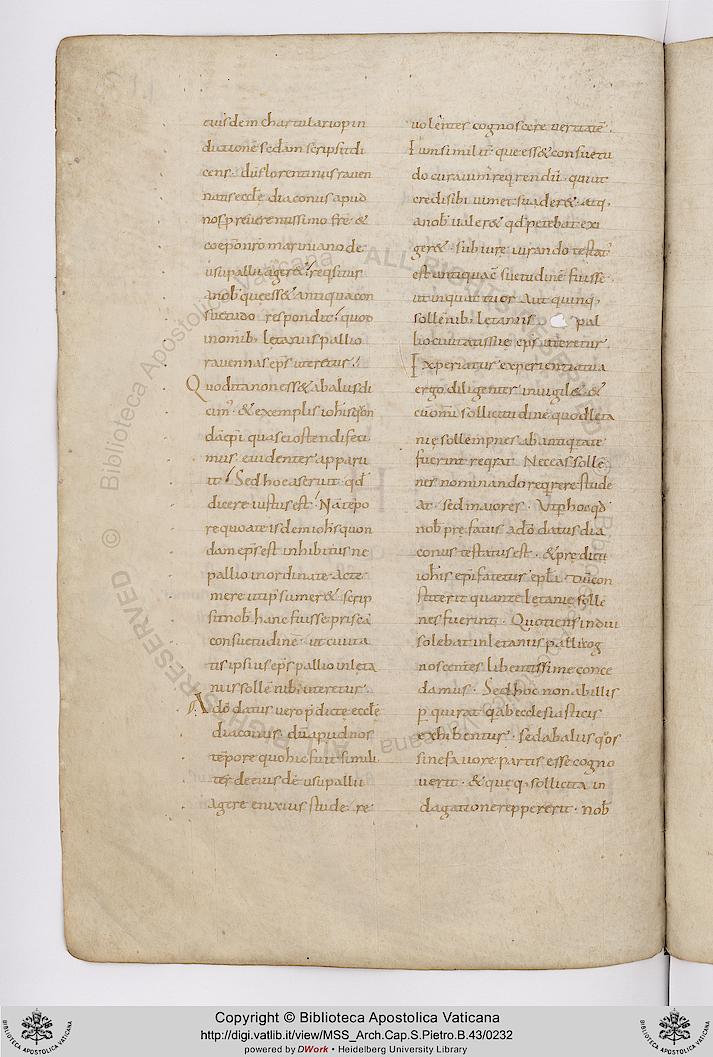 eiusdem chartulario p̄in
dictione sed̄am scripsit di
cens · dū florentinus raven
natis eccłe diaconus apud
nos p̄ reverentissimo fr̄e &
coep̄o nr̄o mariniano de
usu pallii ager& reqsitus
a nob̄ qui ess& antiqua con
suetudo respondit quod
in omib; lętaniis pallio
ravennas ep̄s uteretur
Quod ita non ess& ab aliis di
cim̄ & exemplis ioh̄is q̄on
dā ep̄i quas ei ostendi feci
mus evidenter apparu
it Sed hoc aseruit qđ
dicere iussus est Nā tēpo
re quo ate isdem ioh̄s quon
dam ep̄s est inhibitus ne
pallio inordinate · acte
mere uti p̄sumer& · scrip
sit nob̄ hanc fuisse priscā
consuetudinē · ut civita
tis ipsius ep̄s pallio in lęta
niis sollēnib; uteretur ·
Adō datus vero p̄dictę ecclę
diaconus dū apud nos
tēpore quo hic fuit simili
ter de eius dē usu pallii
agere enixius stude re
volentes cognoscere veritatē ·
Iunsimilit̄ · que ess& consuetu
do curavim̄ reqrendū · qui ut
credi sibi vimet suader& · atq;
a nob̄ valer& qđ petebat exi
ger& · sub iure iurando testat̄
est antiquā cōsuetudinē fuisse
ut in quattuor Aut quinq;
sollēnib; letaniis pal
lio civitatis suę ep̄s uteretur
Experiatur experientia tua
ergo diligenter invigil& · &
cū om̄i sollicitudine quod leta
nię sollempnes ab antiq̄tate
fuerint reqrat Nec eas sollē
nes nominando reqrere stude
at · sed maiores · Ut p̄ hoc qđ
nob̄ pręfatus adō datus dia
conus testatus est · & prędicti
ioh̄is ep̄i fatetur epła · Dū con
stiterit quante letanię sollē
nes fuerint · Quotiens indui
solebat in letaniis pallii cog
noscentes libentissime conce
damus · Sed hoc non ab illis
p̄ quirat q̄ ab ecclesiasticis
exhibentur · sed ab aliis q̄os
sine favore partis esse cogno
verit · & que q; sollicita in
dagatione reppererit · nob̄
© Biblioteca Apostolica Vaticana ALL RIGHTS RESERVED
Copyright © Biblioteca Apostolica Vaticana
http://digi.vatlib.it/view/MSS_Arch.Cap.S.Pietro.B.43/0232
powered by DWork • Heidelberg University Library